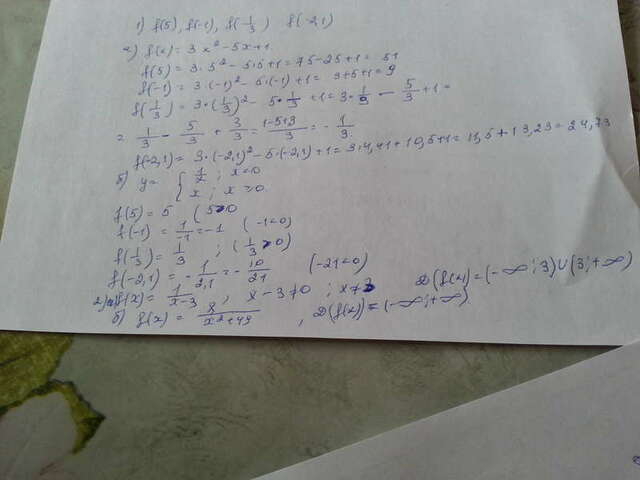 1) f(5), f(-1), f(1/3) f(-2,1)
а) f(x) = 3x² - 5x + 1
f(5) = 3·5² - 5·5 + 1 = 75 - 25 + 1 = 51
f(-1) = 3·(-1)² - 5·(-1) + 1 = 3+5+1 = 9
f(1/3) = 3·(1/3)² - 5·1/3 + 1 = 3·1/9 - 5/3 + 1 =
= 1/3 - 5/3 + 3/3 = 1-5+3/3 = - 1/3.
f(-2,1) = 3·(-2,1)² - 5·(-2,1) + 1 = 3·4,41 + 10,5 + 1 = 11,5 + 13,23 = 24,73
б) y = { 1/x ; x<0
x ; x>0.
f(5) = 5 (5>0
f(-1) = 1/-1 = -1 (-1<0)
f(1/3) = 1/3 ; (1/3>0)
f(-2,1) = - 1/2,1 = - 10/21 (-21<0)
2) а) f(x) = 1/x-3 , x-3≠0 ; x≠3 D(f(x) = (-∞; 3) ∪ (3; +∞)
б) f(x) = x/x²+49 , D(f(x)) = (-∞; +∞)